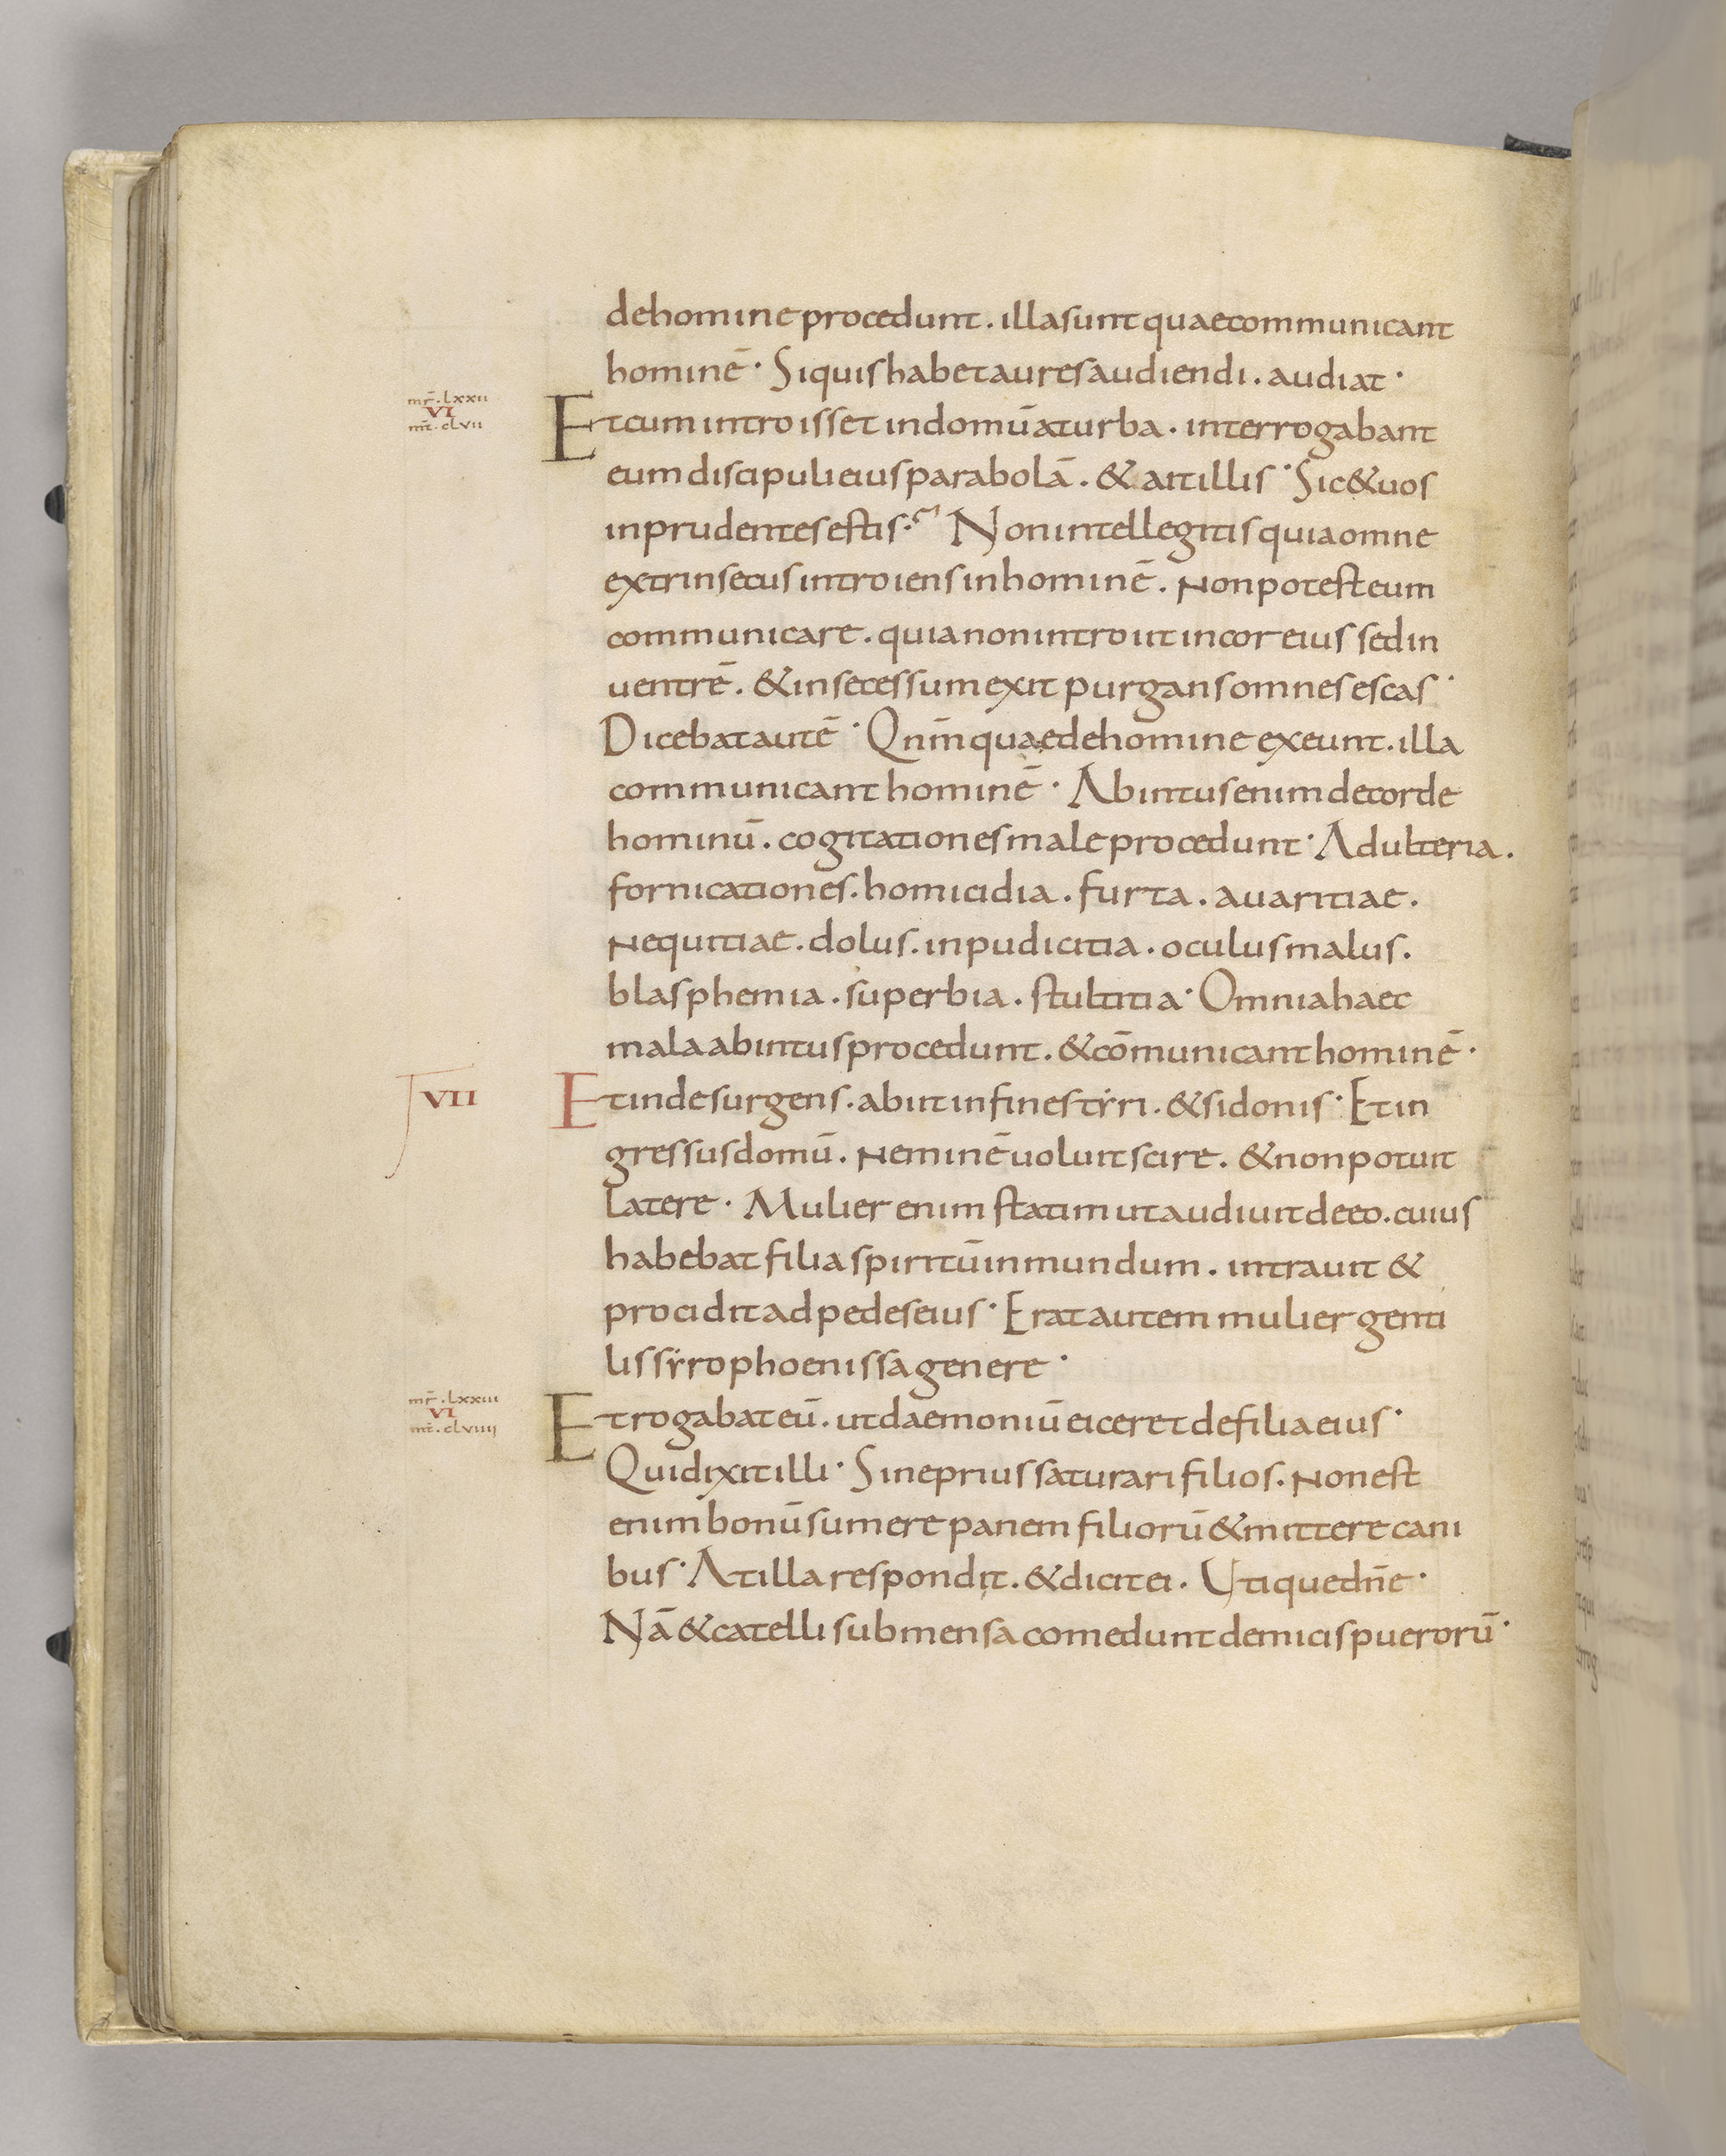 dehomine procedunt. illasunt quaecommunicant
hominē· Siquis habet aures audiendi. audiat·
mr̄. lxxii
VI
mt̄. clvii
Et cum introisset indomū aturba. interrogabant
eum discipuli eius parabolā. & ait illis· Sic & uos
inprudentes estis· Non intellegitis quia omne
extrinsecus introiens inhominē. Non potest eum
communicare. quia non introiit incor eius sed in
uentrē. & insecessum exit purgans omnes escas·
Dicebat autē· Qnm̄ quae dehomine exeunt. illa
communicant hominē· Ab intus enim decorde
hominū. cogitationes male procedunt· Adulteria.
fornicationes. homicidia. furta. auaritiae.
Nequitiae. dolus. inpudicitia. oculus malus.
blasphemia. superbia. stultitia· Omnia haec
mala abintus procedunt. & cōmunicant hominē·
VII
Et inde surgens. abiit infines tẏri. & sidonis· Et in
gressus domū. Neminē uoluit scire. & non potuit
Latere· Mulier enim statim ut audiuit deeo. cuius
habebat filia spiritū inmundum. intrauit &
procidit ad pedes eius· Erat autem mulier genti
lis sẏrophoenissa genere·
mr̄. lxxiii
VI
mt̄. clviiii
Et rogabat eū. ut daemoniū eiceret defilia eius·
Qui dixit illi· Sine prius saturari filios. Non est
enim bonū sumere panem filiorū & mittere cani
bus· At illa respondit. & dicit ei. Utique dn̄e·
Nā & catelli sub mensa comedunt demicis puerorū·